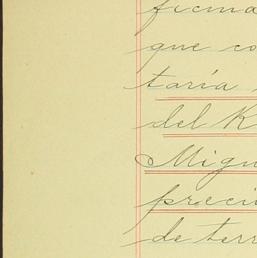 ficma
que co
taría
del K
Migu
preciu
de terr